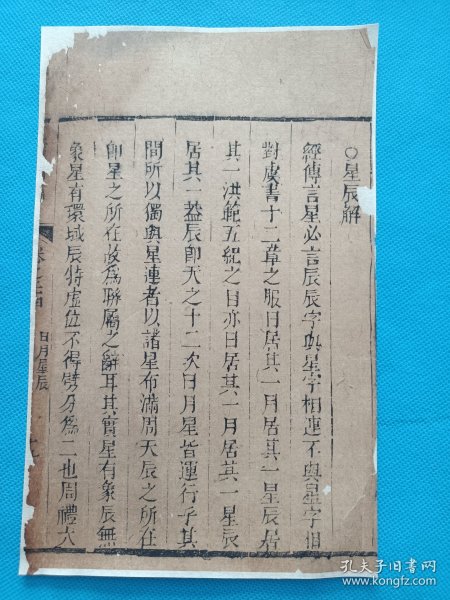 ○星辰解
經傳言星必言辰辰字與星字相連不與星字相
對虞書十二章之服日居其一月居其一星辰居
其一洪範五紀之目亦日居其一月居其一星辰
居其一蓋辰即天之十二次日月星皆運行乎其
間所以獨與星連者以諸星布滿周天辰之所在
即星之所在故爲聯屬之辭耳其實星有象辰無
象星有環域辰特虛位不得劈分爲二也周禮大
卷之四
日月星辰
孔夫子旧书网
www.kongfz.com